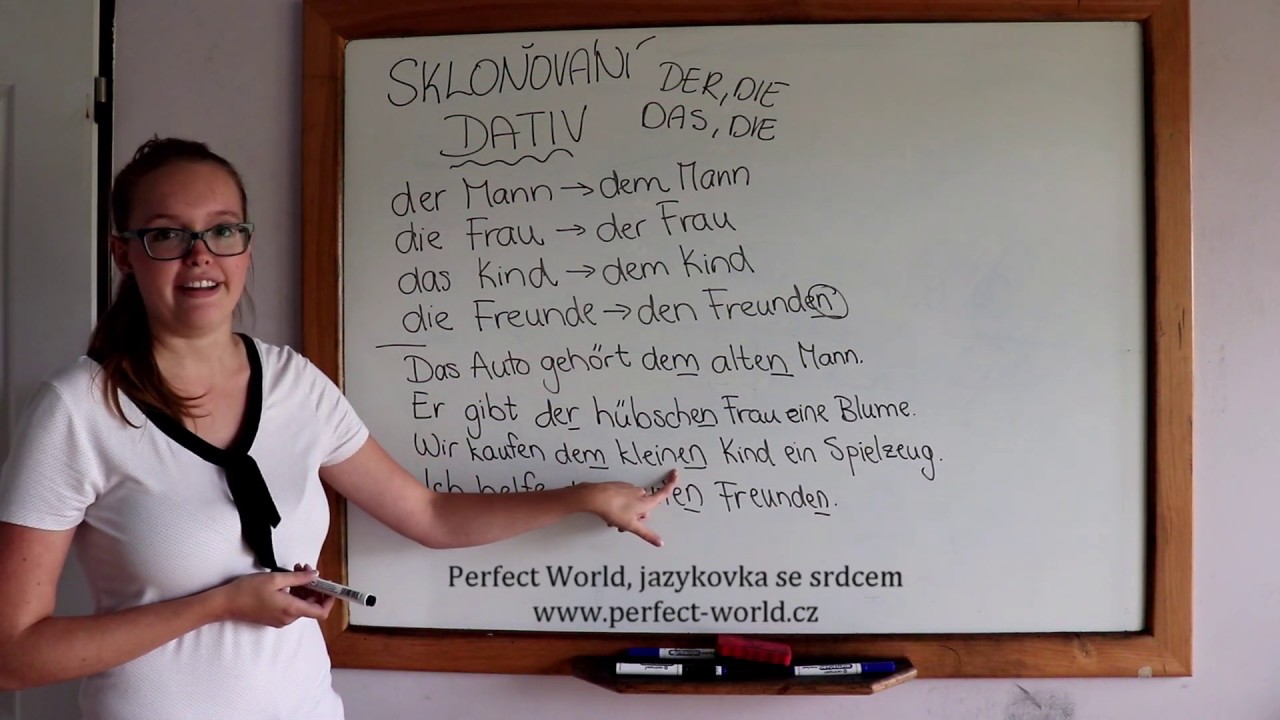 SKLOŇOVÁNÍ DER, DIE
DATIV DAS, DIE
der Mann → dem Mann
die Frau → der Frau
das Kind → dem Kind
die Freunde → den Freunden
Das Auto gehört dem alten Mann.
Er gibt der hübschen Frau eine Blume.
Wir kaufen dem kleinen Kind ein Spielzeug.
Ich helfe Freunden.
Perfect World, jazykovka se srdcem
www.perfect-world.cz